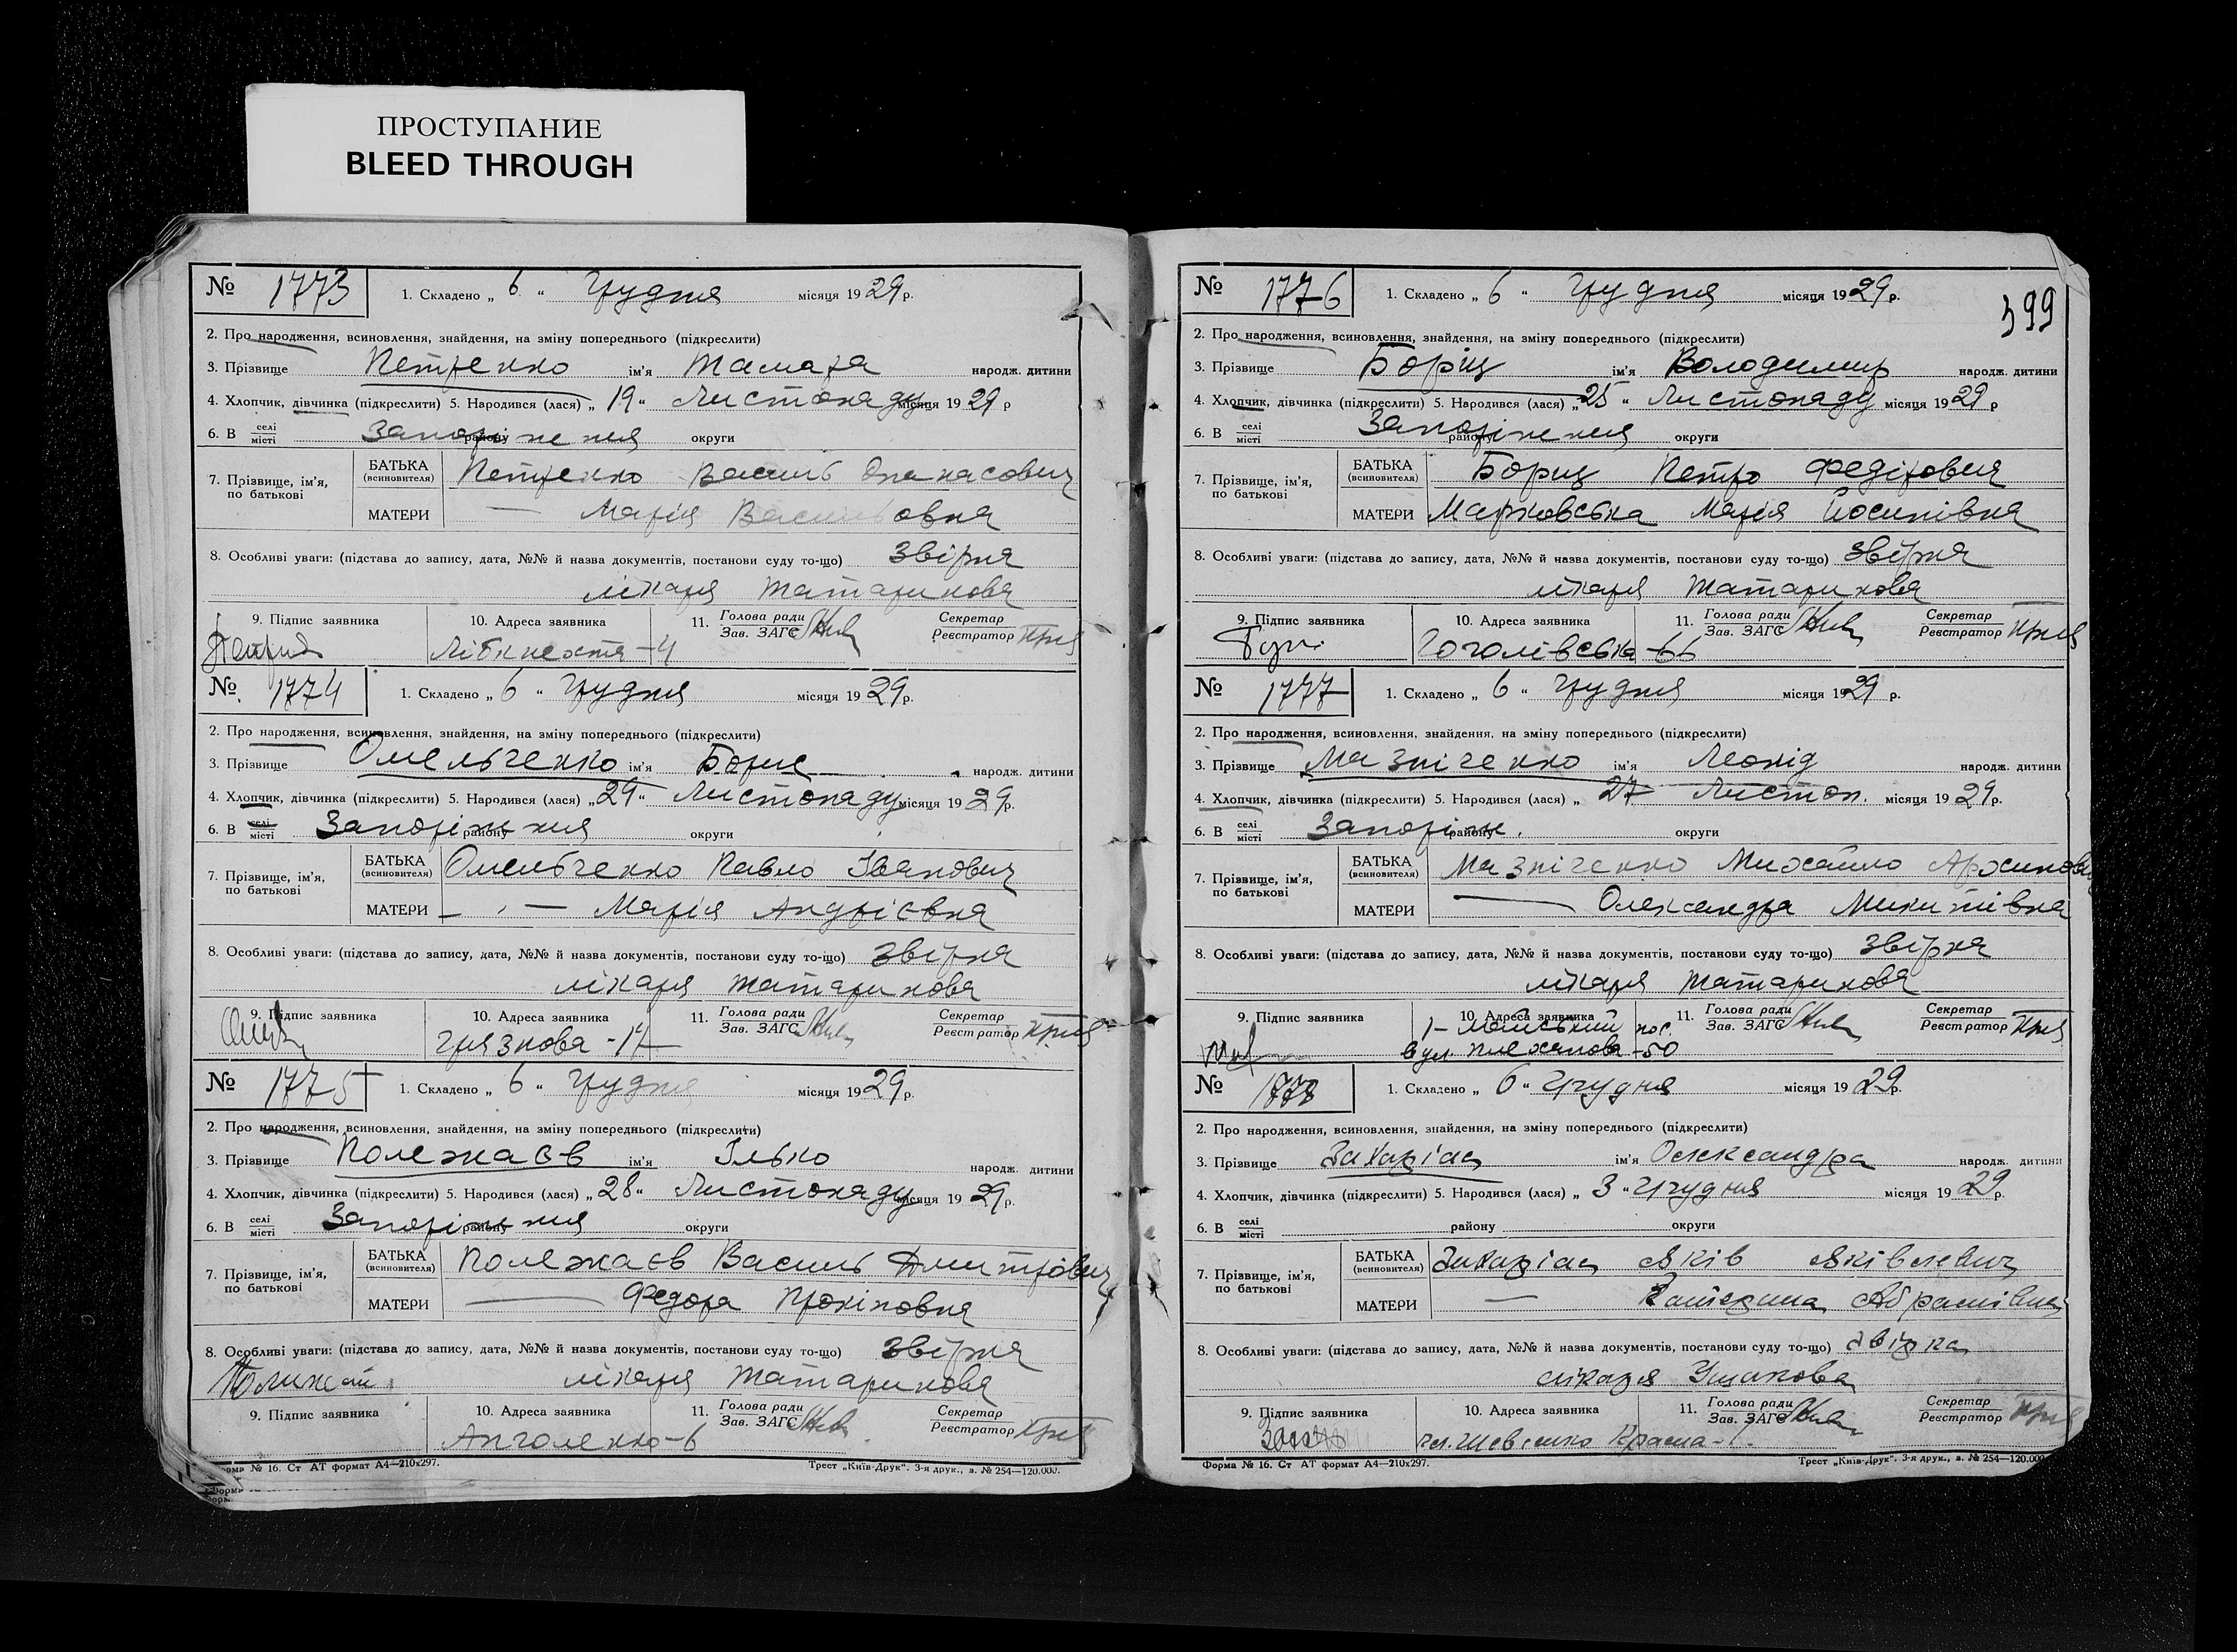 ПРОСТУПАНИЕ
BLEED THROUGH
№ 1773 1. Складено „ 6 “ Грудня місяця 1929 р.
2. Про народження, всиновлення, знайдення, на зміну попереднього (підкреслити)
3. Прізвище Петренко ім'я Тамара народж. дитини
4. Хлопчик, дівчинка (підкреслити) 5. Народився (лася) „ 19 “ Листопаду місяця 1929 р
6. В селі місті Запоріжжя району округи
7. Прізвище, ім'я, по батькові БАТЬКА (всиновителя) Петренко Василь Опанасович
МАТЕРИ — Марія Васильовна
8. Особливі уваги: (підстава до запису, дата, №№ й назва документів, постанови суду то-що) Звірка
лікаря Татаринова
9. Підпис заявника 10. Адреса заявника 11. Голова ради Зав. ЗАГС Секретар Реєстратор
Лібкнехта-4
№ 1774 1. Складено „ 6 “ Грудня місяця 1929 р.
2. Про народження, всиновлення, знайдення, на зміну попереднього (підкреслити)
3. Прізвище Омельченко ім'я Борис народж. дитини
4. Хлопчик, дівчинка (підкреслити) 5. Народився (лася) „ 29 “ Листопаду місяця 1929 р.
6. В селі місті Запоріжжя району округи
7. Прізвище, ім'я, по батькові БАТЬКА (всиновителя) Омельченко Павло Іванович
МАТЕРИ — „ — Марія Андрієвна
8. Особливі уваги: (підстава до запису, дата, №№ й назва документів, постанови суду то-що) Звірка
лікаря Татаринова
9. Підпис заявника 10. Адреса заявника 11. Голова ради Зав. ЗАГС Секретар Реєстратор
Грязнова-17
№ 1775 1. Складено „ 6 “ Грудня місяця 1929 р.
2. Про народження, всиновлення, знайдення, на зміну попереднього (підкреслити)
3. Прізвище Полежаєв ім'я Ілько народж. дитини
4. Хлопчик, дівчинка (підкреслити) 5. Народився (лася) „ 28 “ Листопаду місяця 1929 р.
6. В селі місті Запоріжжя району округи
7. Прізвище, ім'я, по батькові БАТЬКА (всиновителя) Полежаєв Василь Дмитрович
МАТЕРИ — Федора Прокіповна
8. Особливі уваги: (підстава до запису, дата, №№ й назва документів, постанови суду то-що) Звірка
лікаря Татаринова
9. Підпис заявника 10. Адреса заявника 11. Голова ради Зав. ЗАГС Секретар Реєстратор
Анголенко-6
Форма № 16. Ст АТ формат А4—210х297. Трест „Київ-Друк“. 3-я друк., з. № 254—120.000.
399
№ 1776 1. Складено „ 6 “ Грудня місяця 1929 р.
2. Про народження, всиновлення, знайдення, на зміну попереднього (підкреслити)
3. Прізвище Борщ ім'я Володимир народж. дитини
4. Хлопчик, дівчинка (підкреслити) 5. Народився (лася) „ 25 “ Листопаду місяця 1929 р
6. В селі місті Запоріжжя району округи
7. Прізвище, ім'я, по батькові БАТЬКА (всиновителя) Борщ Петро Федорович
МАТЕРИ Марковська Марія Йосипівна
8. Особливі уваги: (підстава до запису, дата, №№ й назва документів, постанови суду то-що) Звірка
лікаря Татаринова
9. Підпис заявника 10. Адреса заявника 11. Голова ради Зав. ЗАГС Секретар Реєстратор
Гоголівська-66
№ 1777 1. Складено „ 6 “ Грудня місяця 1929 р.
2. Про народження, всиновлення, знайдення, на зміну попереднього (підкреслити)
3. Прізвище Мазніченко ім'я Леонід народж. дитини
4. Хлопчик, дівчинка (підкреслити) 5. Народився (лася) „ 27 Листоп. місяця 1929 р.
6. В селі місті Запоріж. району округи
7. Прізвище, ім'я, по батькові БАТЬКА (всиновителя) Мазніченко Михайло
МАТЕРИ — Олександра Микитівна
8. Особливі уваги: (підстава до запису, дата, №№ й назва документів, постанови суду то-що) Звірка
лікаря Татаринова
9. Підпис заявника 10. Адреса заявника 11. Голова ради Зав. ЗАГС Секретар Реєстратор
1-Майський пос.
вул. Плеханова-50
№ 1778 1. Складено „ 6 “ Грудня місяця 1929 р.
2. Про народження, всиновлення, знайдення, на зміну попереднього (підкреслити)
3. Прізвище Захаріас ім'я Олександра народж. дитини
4. Хлопчик, дівчинка (підкреслити) 5. Народився (лася) „ 3 “ Грудня місяця 1929 р.
6. В селі місті району округи
7. Прізвище, ім'я, по батькові БАТЬКА (всиновителя) Захаріас Яків Яківлевич
МАТЕРИ — Катерина Абрамівна
8. Особливі уваги: (підстава до запису, дата, №№ й назва документів, постанови суду то-що) звірка
лікаря Ушакова
9. Підпис заявника 10. Адреса заявника 11. Голова ради Зав. ЗАГС Секретар Реєстратор
Форма № 16. Ст АТ формат А4—210х297. Трест „Київ-Друк“. 3-я друк., з. № 254—120.000